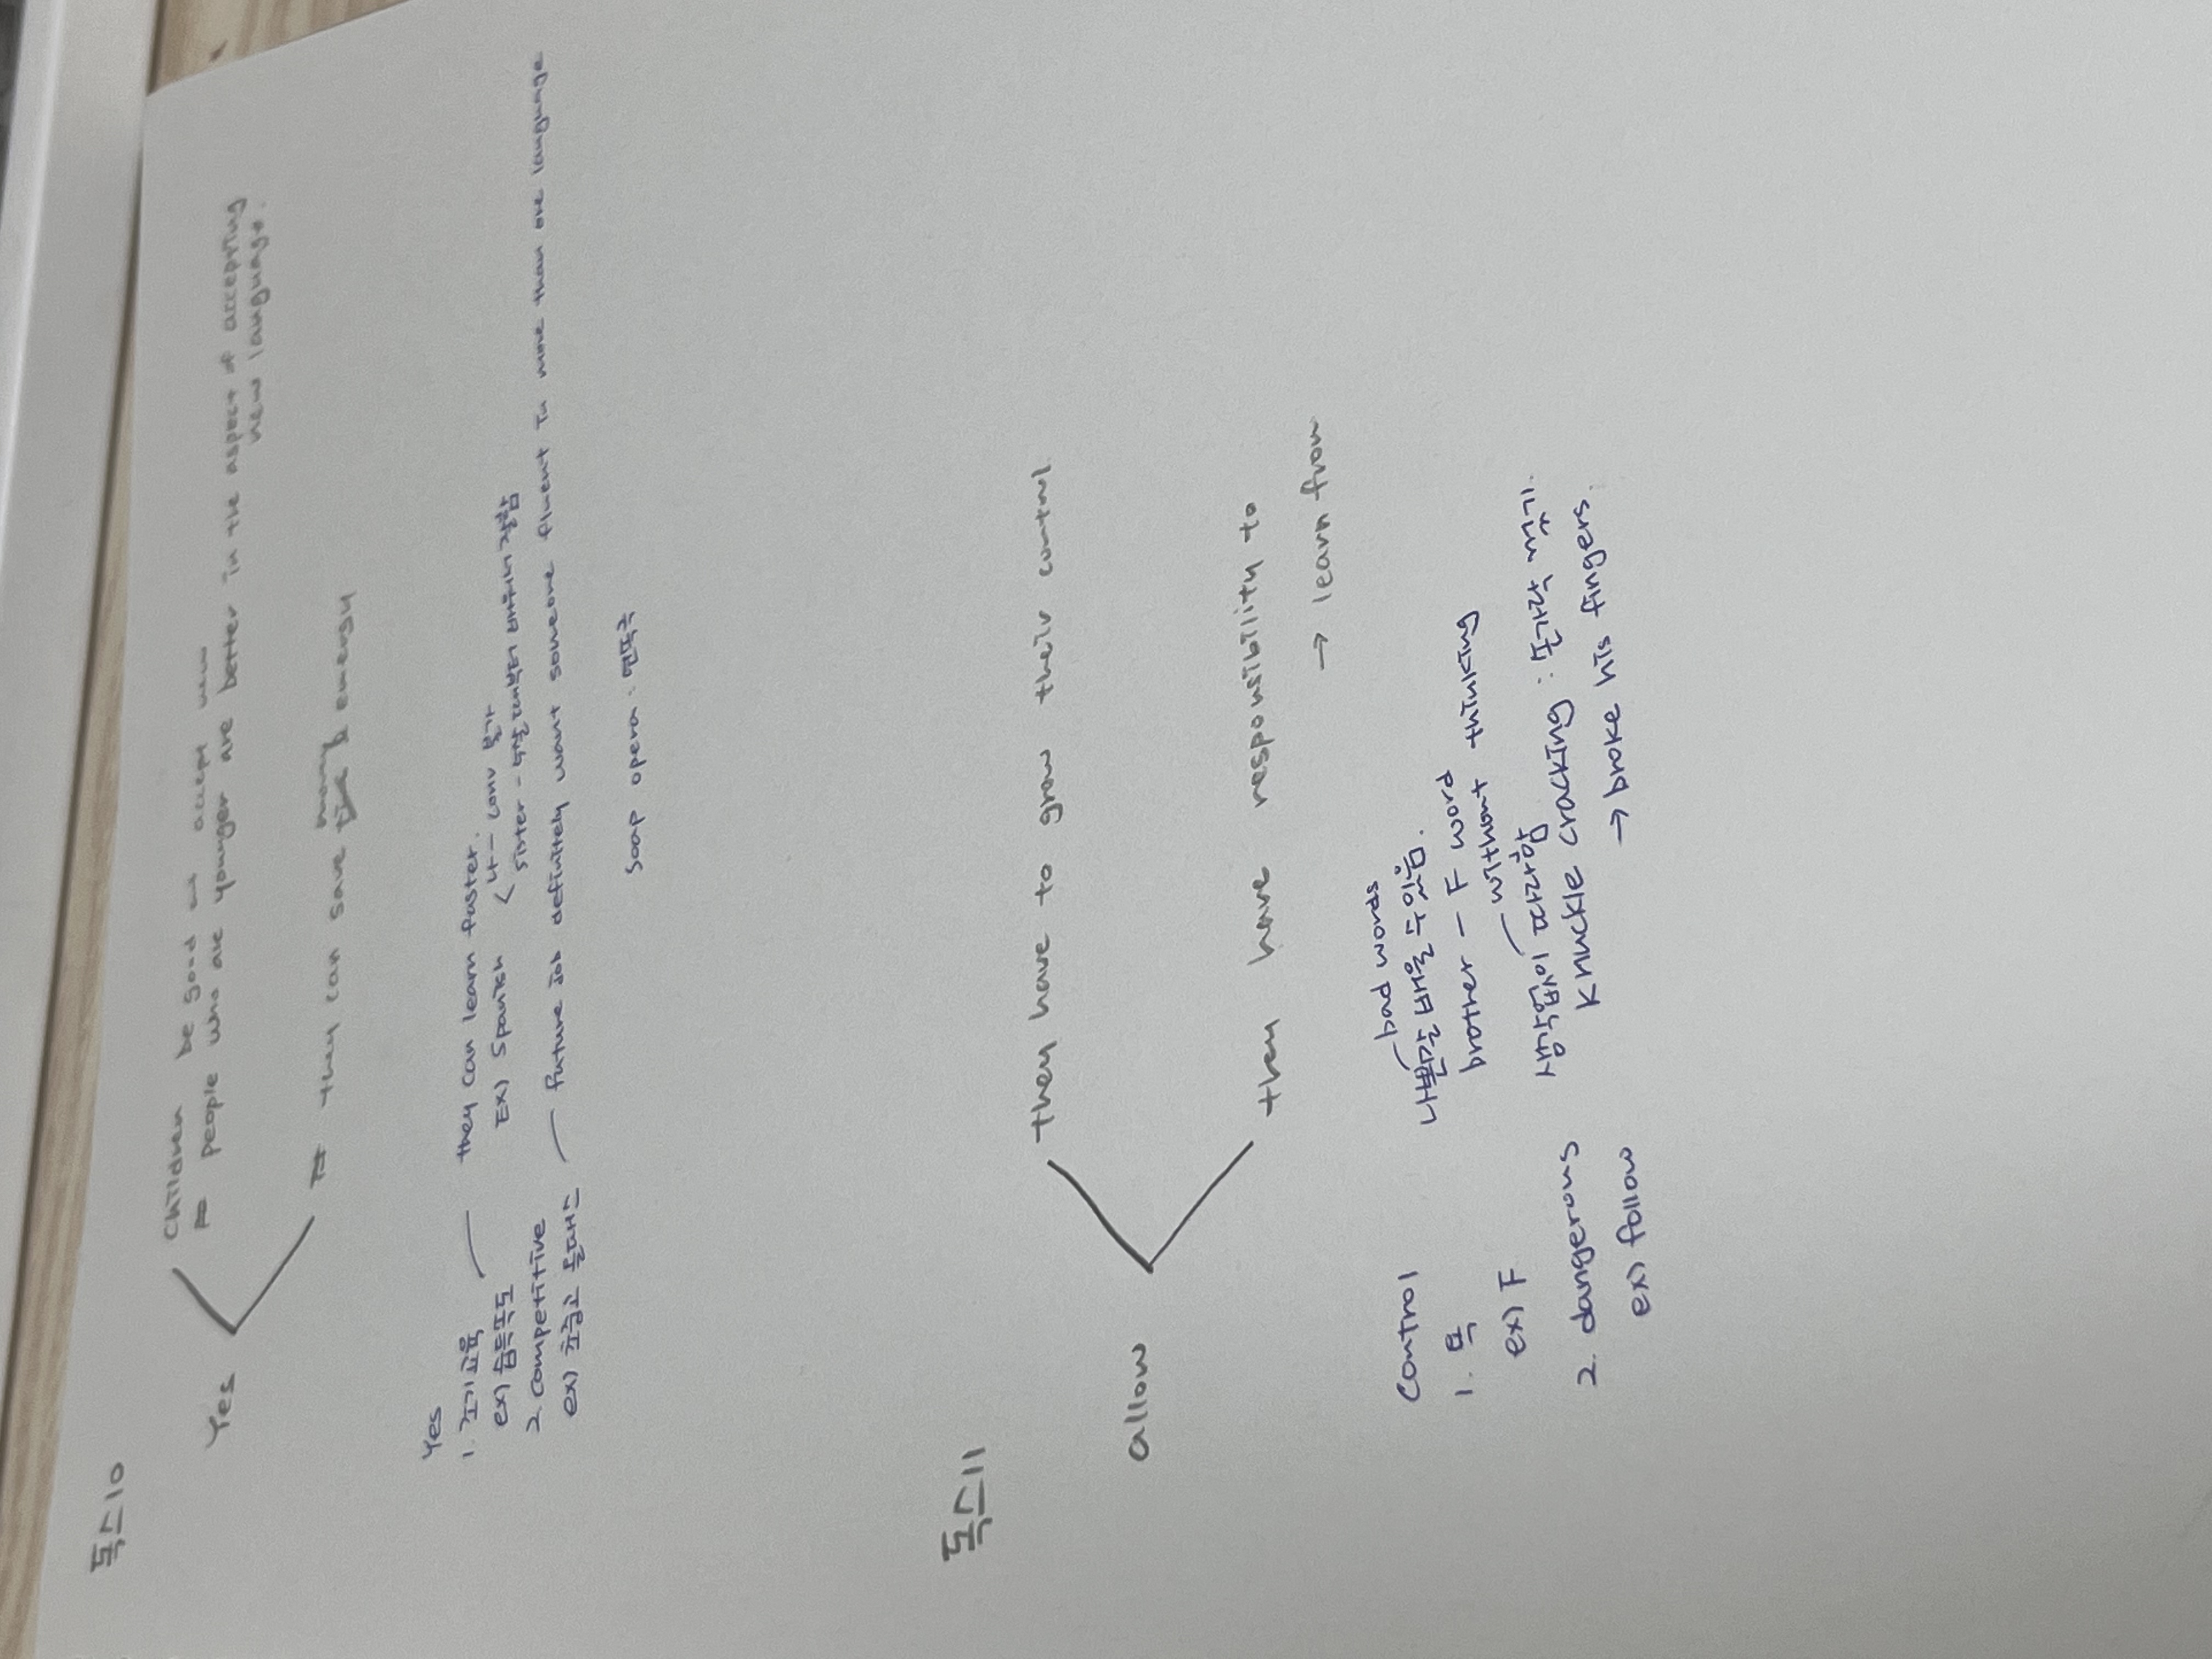 톡스10
Yes
Children be good at accept new
people who are younger are better in the aspect of accepting
new language.
they can save money energy
Yes
1. 조기교육 they can learn faster.
ex) 습득속도 Ex) Spanish < 나 - conv 불가
sister - 수월
2 competitive future job definitely want someone fluent in more than one language
ex) 조종고
soap opera: 연속극
톡스11
allow
they have to grow their control
they have responsibility to
→ learn from
control
1. 욕 bad words
나쁜말 배울 수 있음.
ex) F brother - F word
without thinking
2. dangerous 생각없이 따라함
ex) follow knuckle cracking : 손가락 꺾기.
→ broke his fingers.